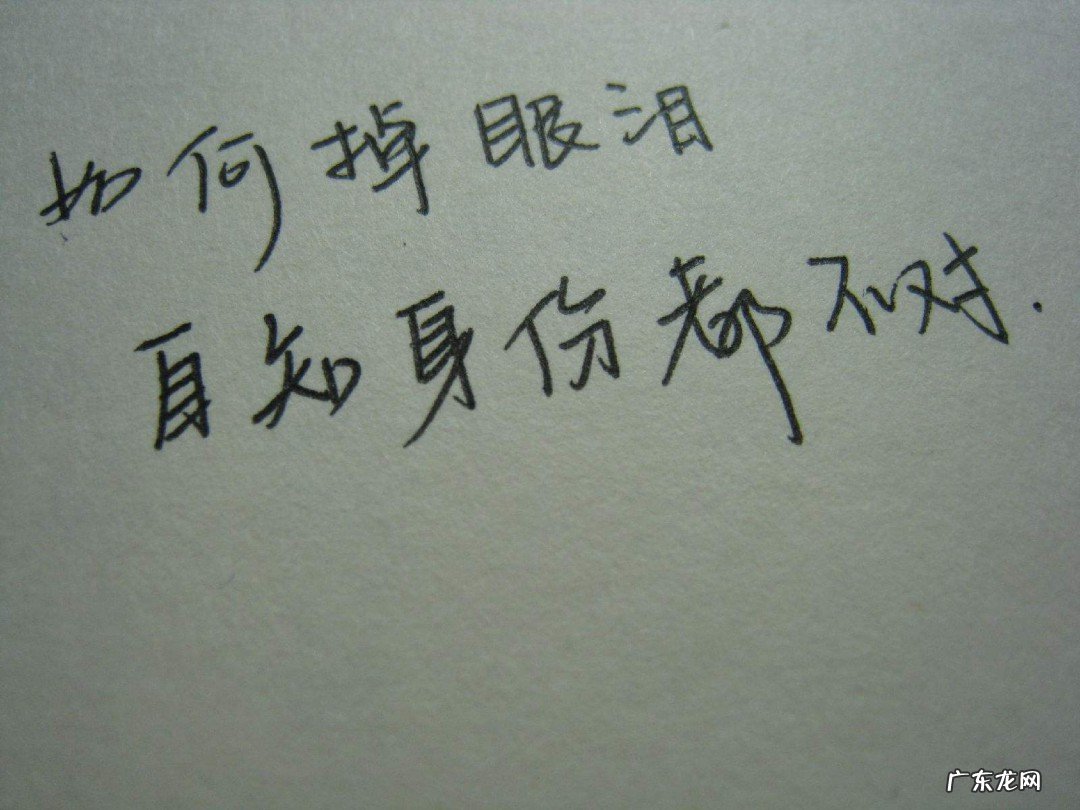 如何掉眼泪
自知身份都不对.
广东龙网